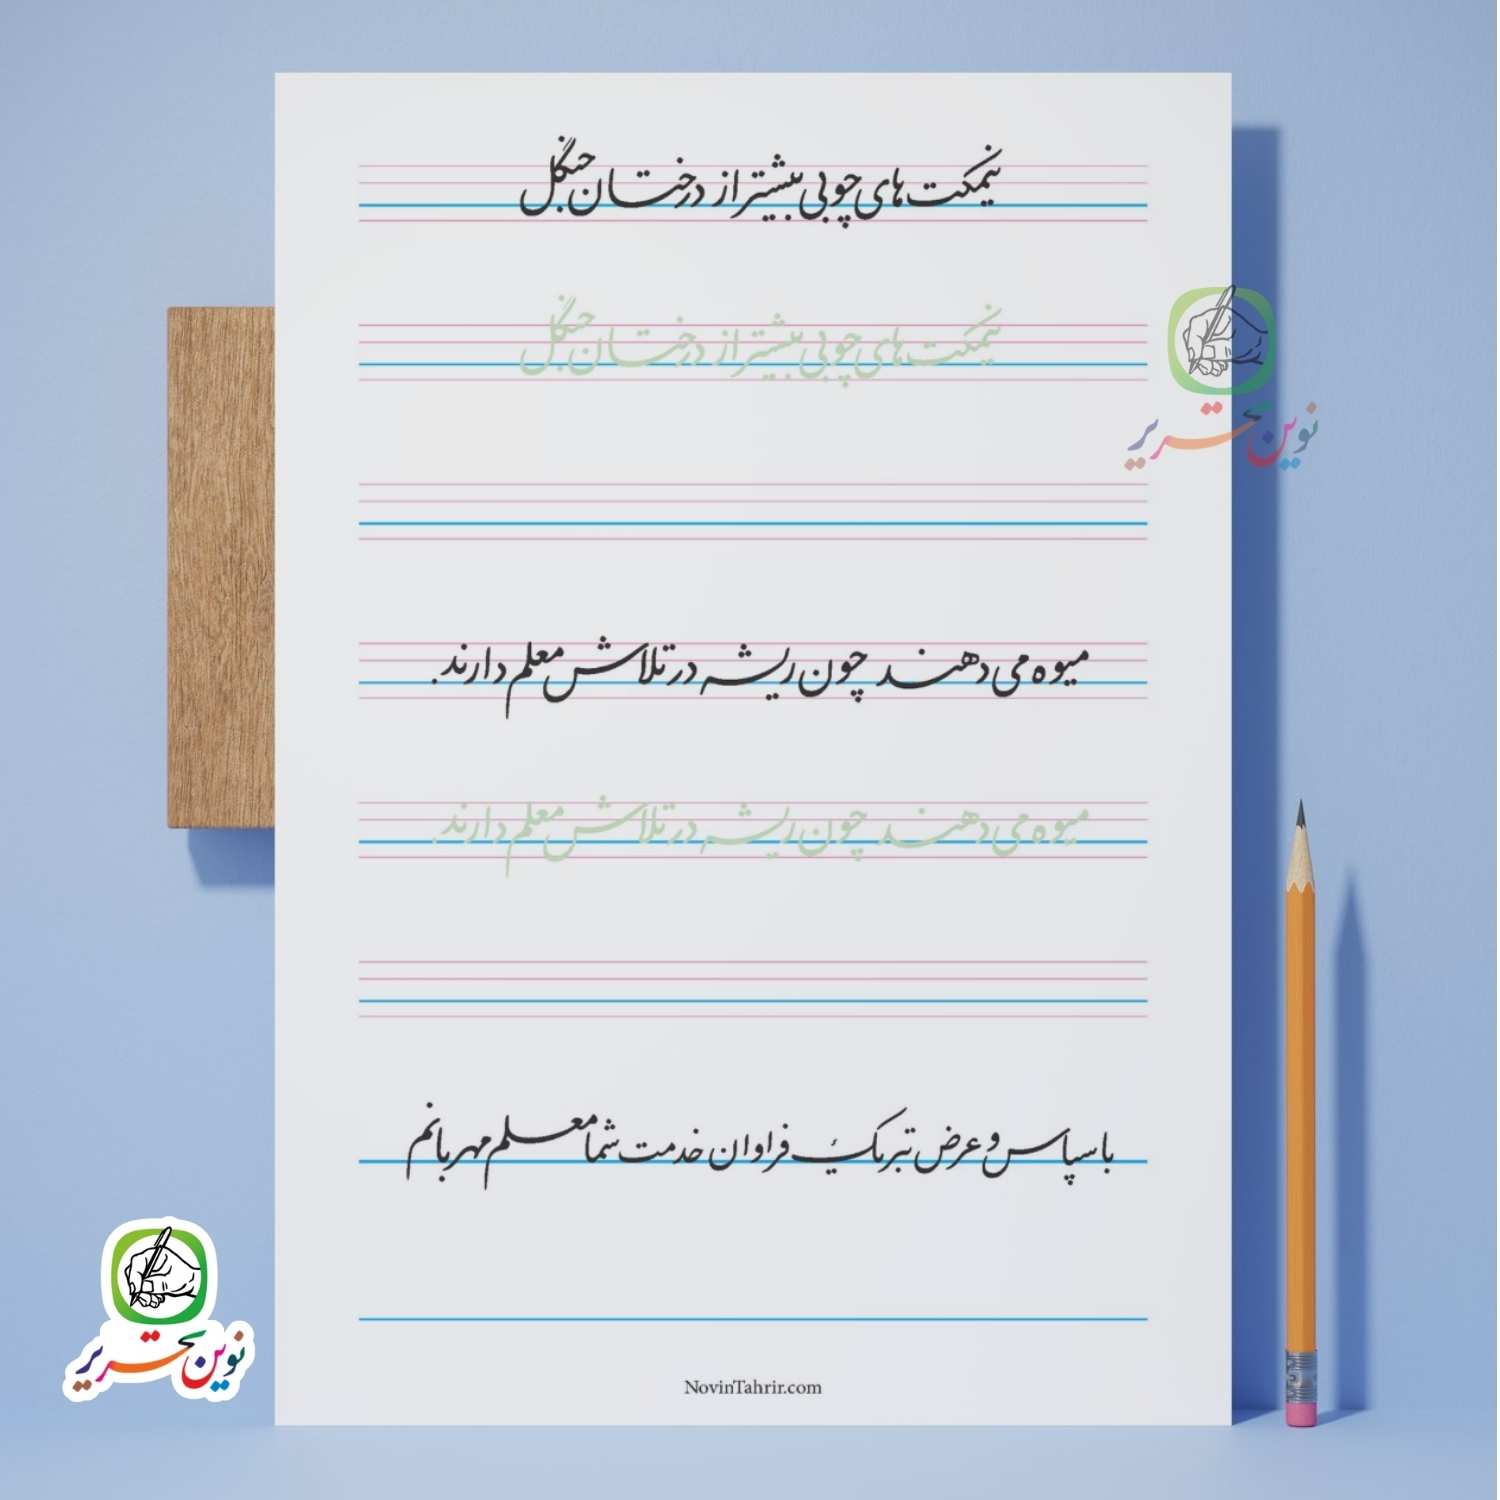 نیمکت های چوبی بیشتر از درختان جنگل
نیمکت های چوبی بیشتر از درختان جنگل
نوین تحریر
میوه می دهند چون ریشه در تلاش معلم دارند.
میوه می دهند چون ریشه در تلاش معلم دارند.
با سپاس و عرض تبریک فراوان خدمت شما معلم مهربانم
نوین تحریر
NovinTahrir.com